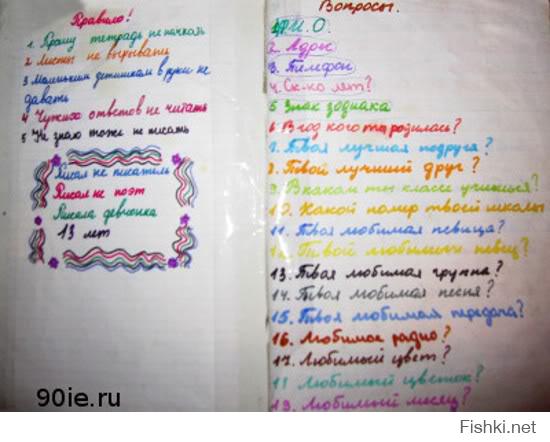 Правило!
1. Прошу тетрадь не пачкать
2 Листы не вырывать
3 Маленьким детишкам в руки не
давать
4 Чужих ответов не читать
5 Не знаю тоже не писать
Писал не писатель
Писал не поэт
Писала девчонка
13 лет
90ie.ru
Вопросы.
1. Ф.И.О.
2. Адрес
3. Телефон
4. Ск-ко лет?
5 Знак зодиака
6. В год кого ты родилась?
7. Твоя лучшая подруга?
8. Твой лучший друг?
9. В каком ты классе учишься?
10. Какой номер твоей школы
11. Твоя любимая певица?
12. Твой любимый певец?
13. Твоя любимая группа?
14. Твоя любимая песня?
15. Твоя любимая передача?
16. Любимое радио?
17. Любимый цвет?
18 Любимый цветок?
19. Любимый месяц?
Fishki.net